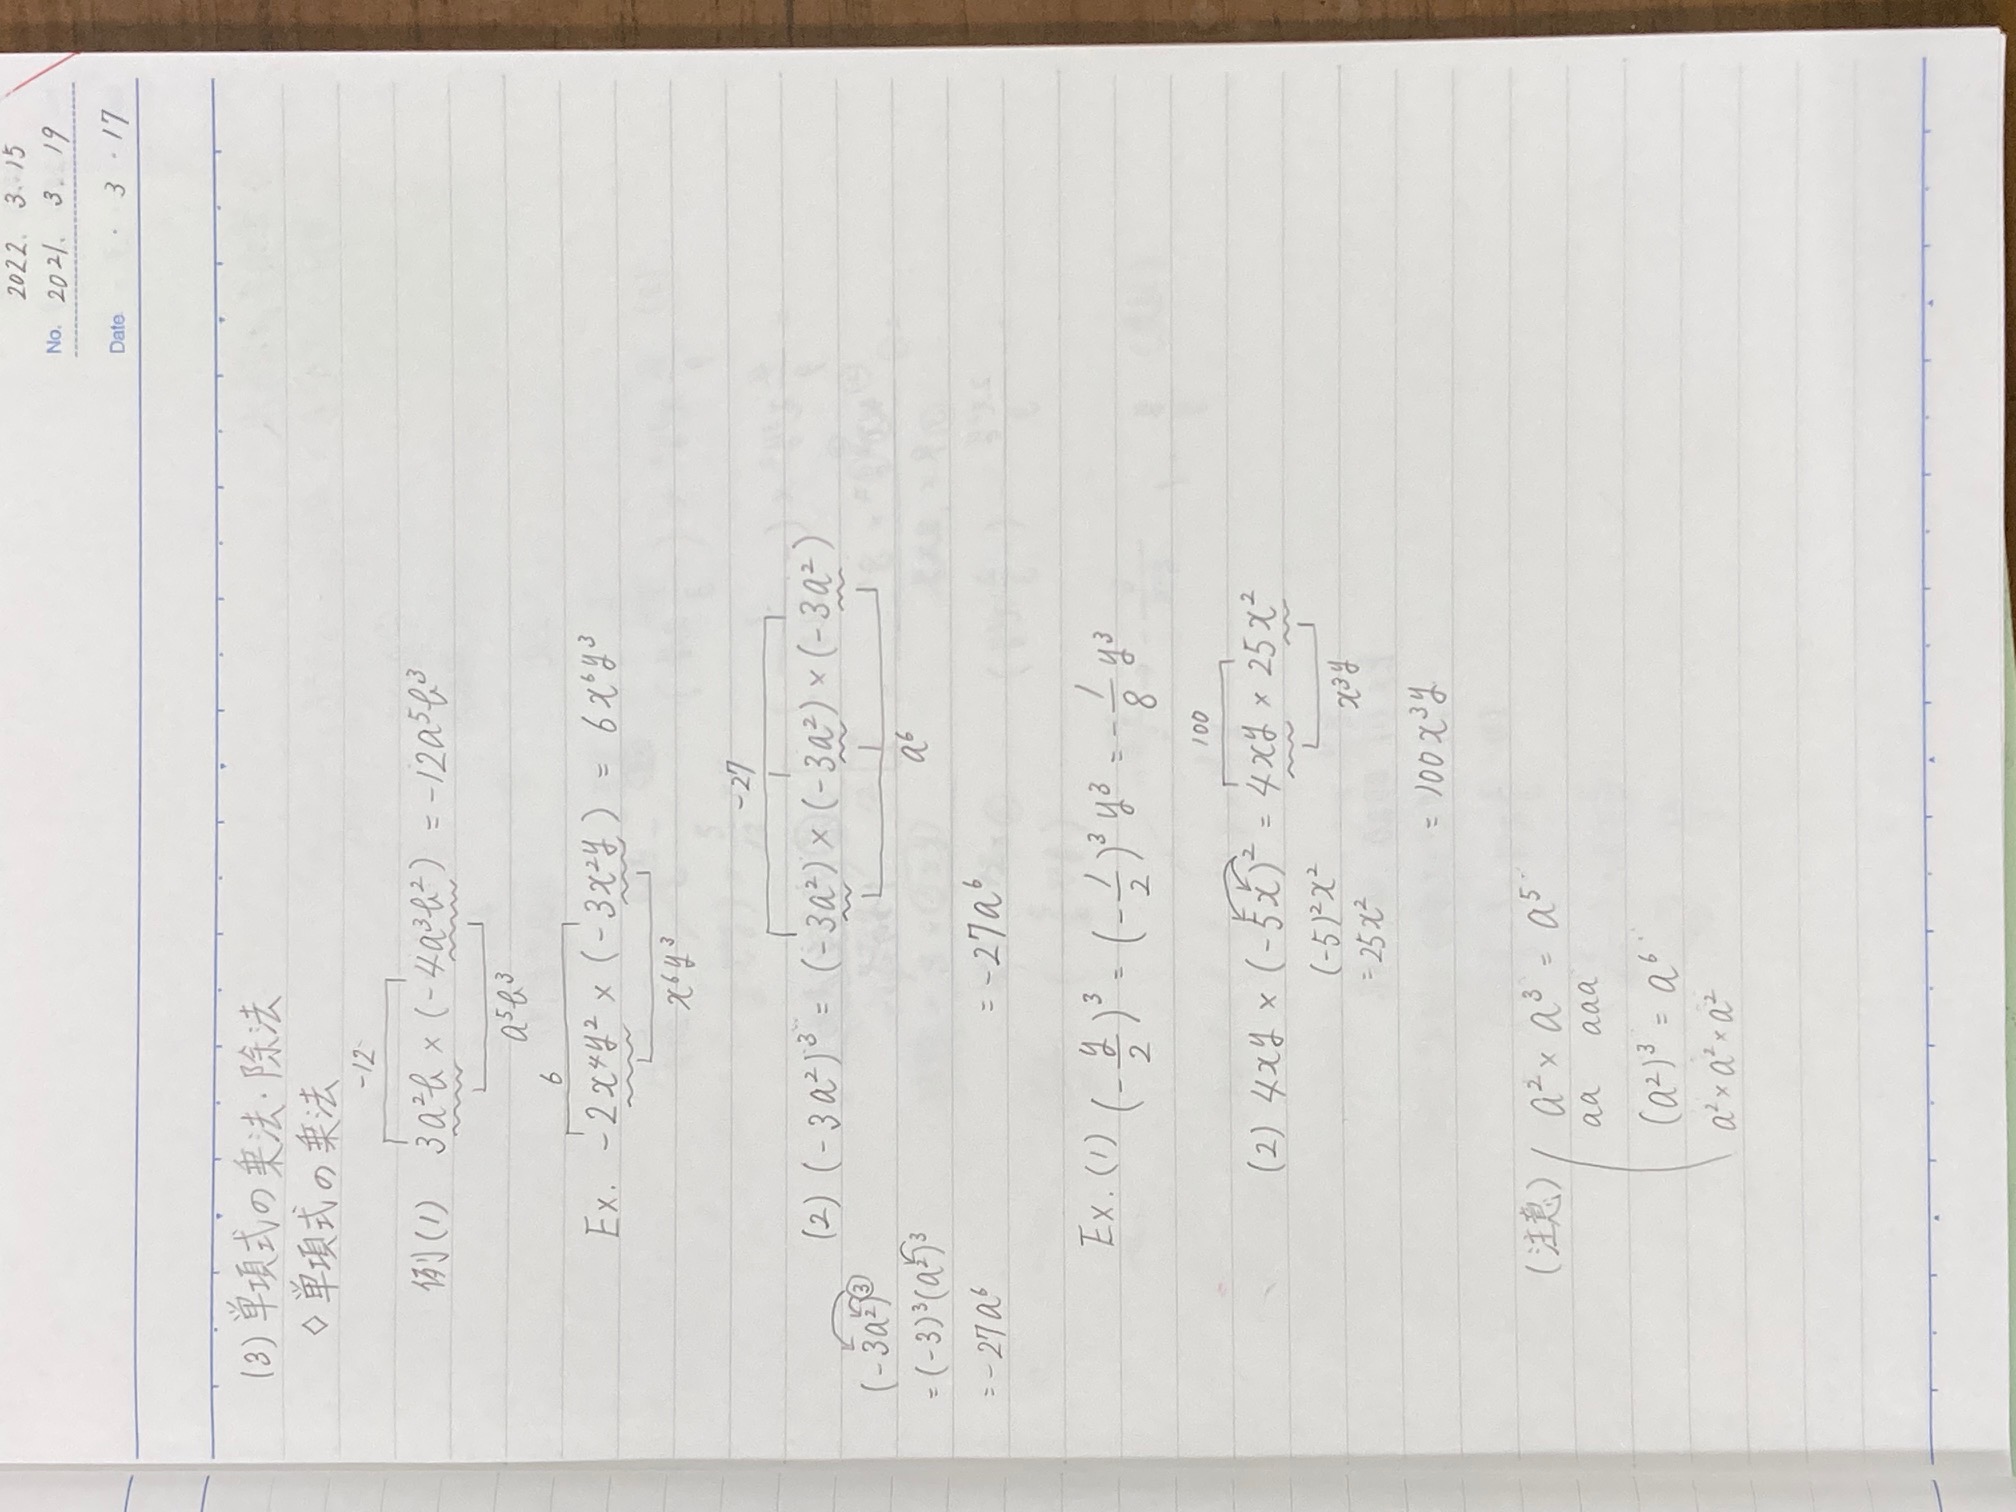 2022. 3. 15
No. 2021. 3. 19
Date ・ 3 ・ 17
(3) 単項式の乗法・除法
◇ 単項式の乗法
-12
例(1) 3a²b × (-4a³b²) = -12a⁵b³
a⁵b³
6
Ex. -2x⁴y² × (-3x²y) = 6x⁶y³
x⁶y³
-27
(2) (-3a²)³ = (-3a²) × (-3a²) × (-3a²)
a⁶
= -27a⁶
(-3a²)³
= (-3)³(a²)³
= -27a⁶
Ex. (1) (-y/2)³ = (-1/2)³y³ = -1/8 y³
100
(2) 4xy × (-5x)² = 4xy × 25x²
(-5)²x²
= 25x²
x³y
= 100x³y
(注意) a² × a³ = a⁵
aa aaa
(a²)³ = a⁶
a² × a² × a²